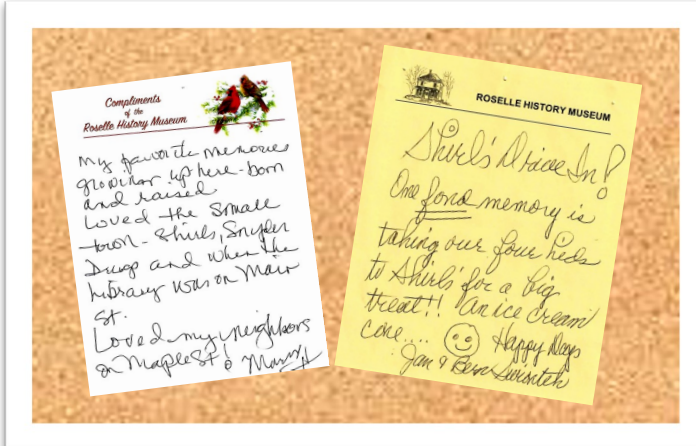 Compliments
of the
Roselle History Museum
My favorite memories
growing up here - born
and raised
Loved the small
town - Shirls, Snyder
Drug and when the
library was on Main
St.
Loved my neighbors
on Maple St!
ROSELLE HISTORY MUSEUM
Shirl's Drive In!
One fond memory is
taking our four kids
to Shirls for a big
treat!! An ice cream
cone...
Happy Days
Jan & Bern Swiontek